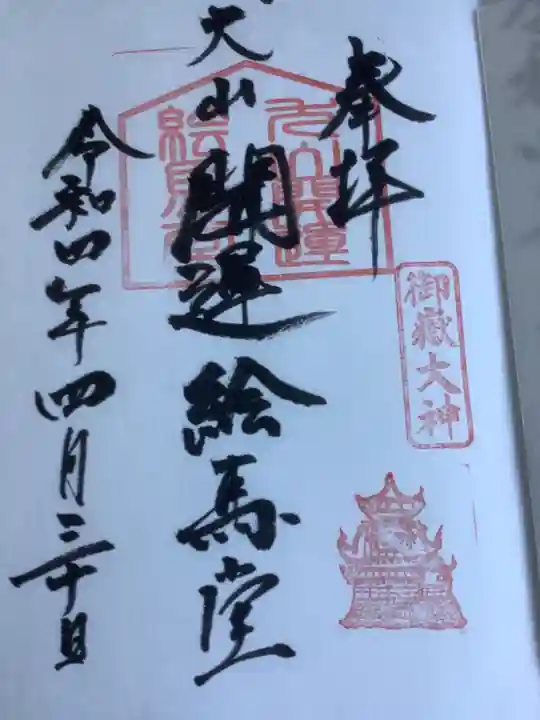 奉拝
御嶽大神
犬山開運絵馬堂
犬山開運
絵馬堂
令和四年四月三十日